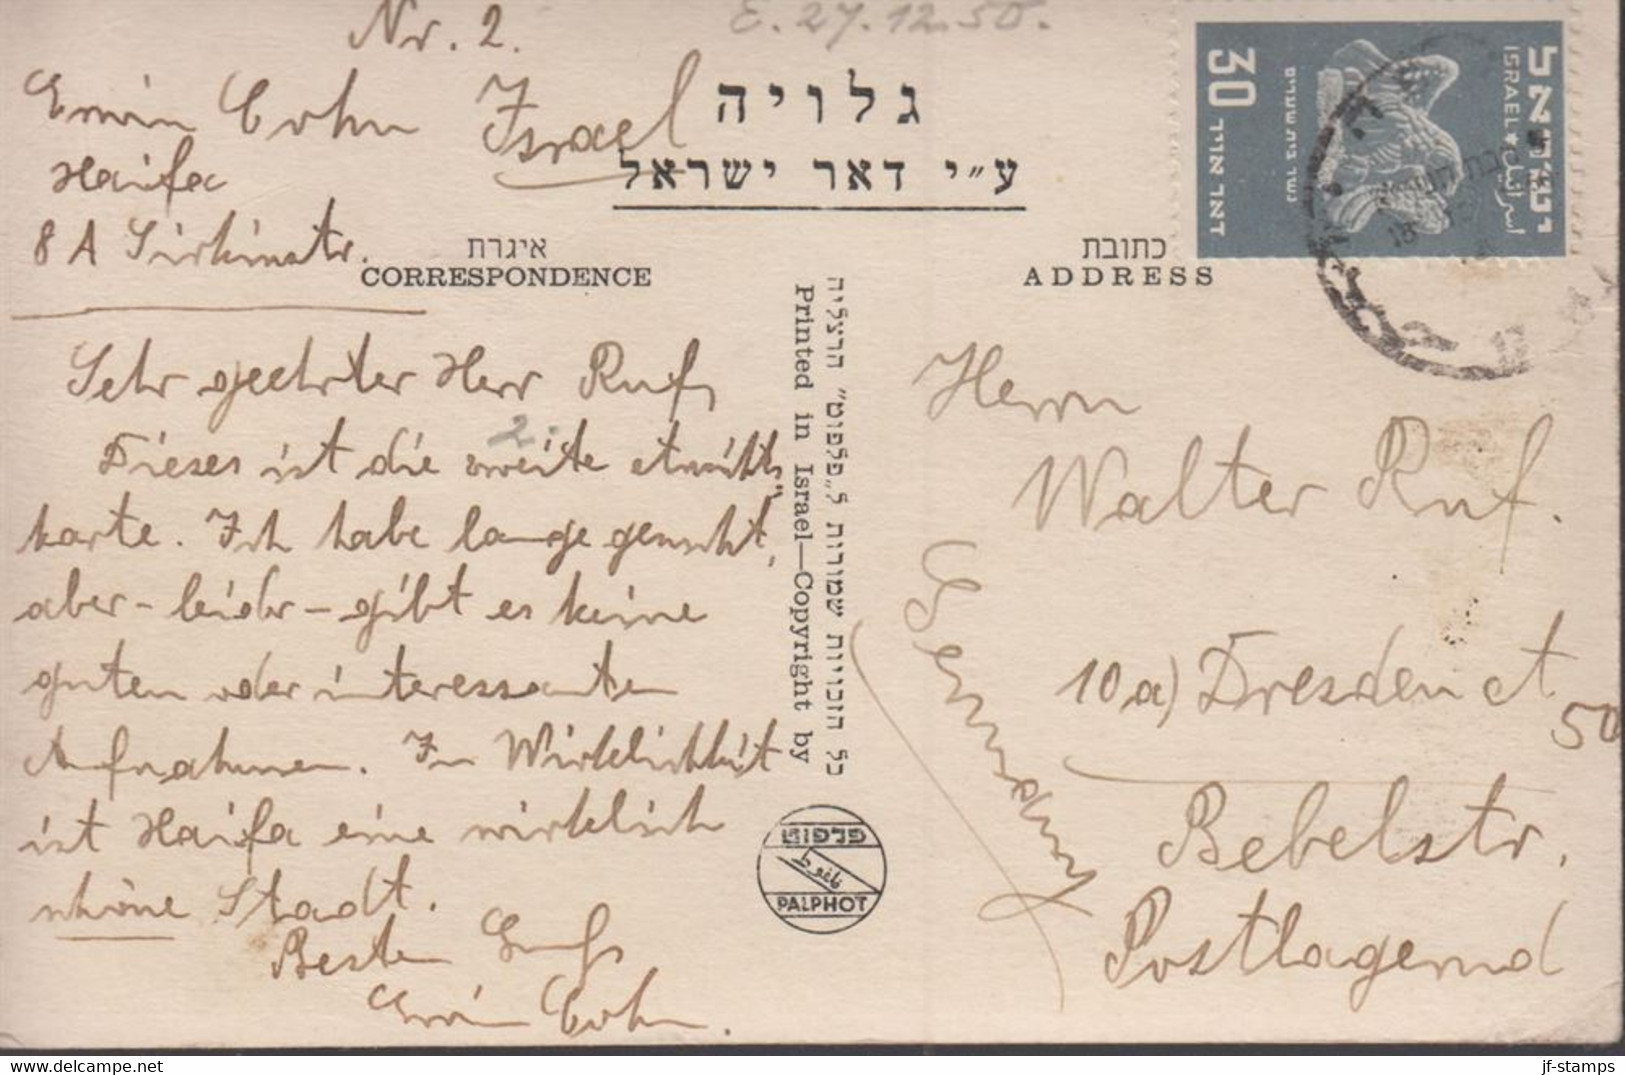 Nr. 2.
E. 27.12.50.
Erwin Cohn Israel
Haifa
8 A Sirkinstr.
גלויה
ע"י דאר ישראל
איגרת
CORRESPONDENCE
כתובת
ADDRESS
ישראל
ISRAEL
اسرائيل
30
דאר אויר
Sehr geehrter Herr Ruf,
2.
Dieses ist die zweite
karte. Ich habe lange gesucht,
aber - leider - gibt es keine
guten oder interessanten
Aufnahmen. In Wirklichkeit
ist Haifa eine wirklich
schöne Stadt.
Besten Gruß
Erwin Cohn.
כל הזכויות שמורות ל„פלפוט" הרצליה
Printed in Israel—Copyright by
פלפוט
PALPHOT
Herrn
Walter Ruf.
10a) Dresden A
50
Bebelstr.
Postlagernd
Germany
© jf-stamps
DELCAMPE.NET